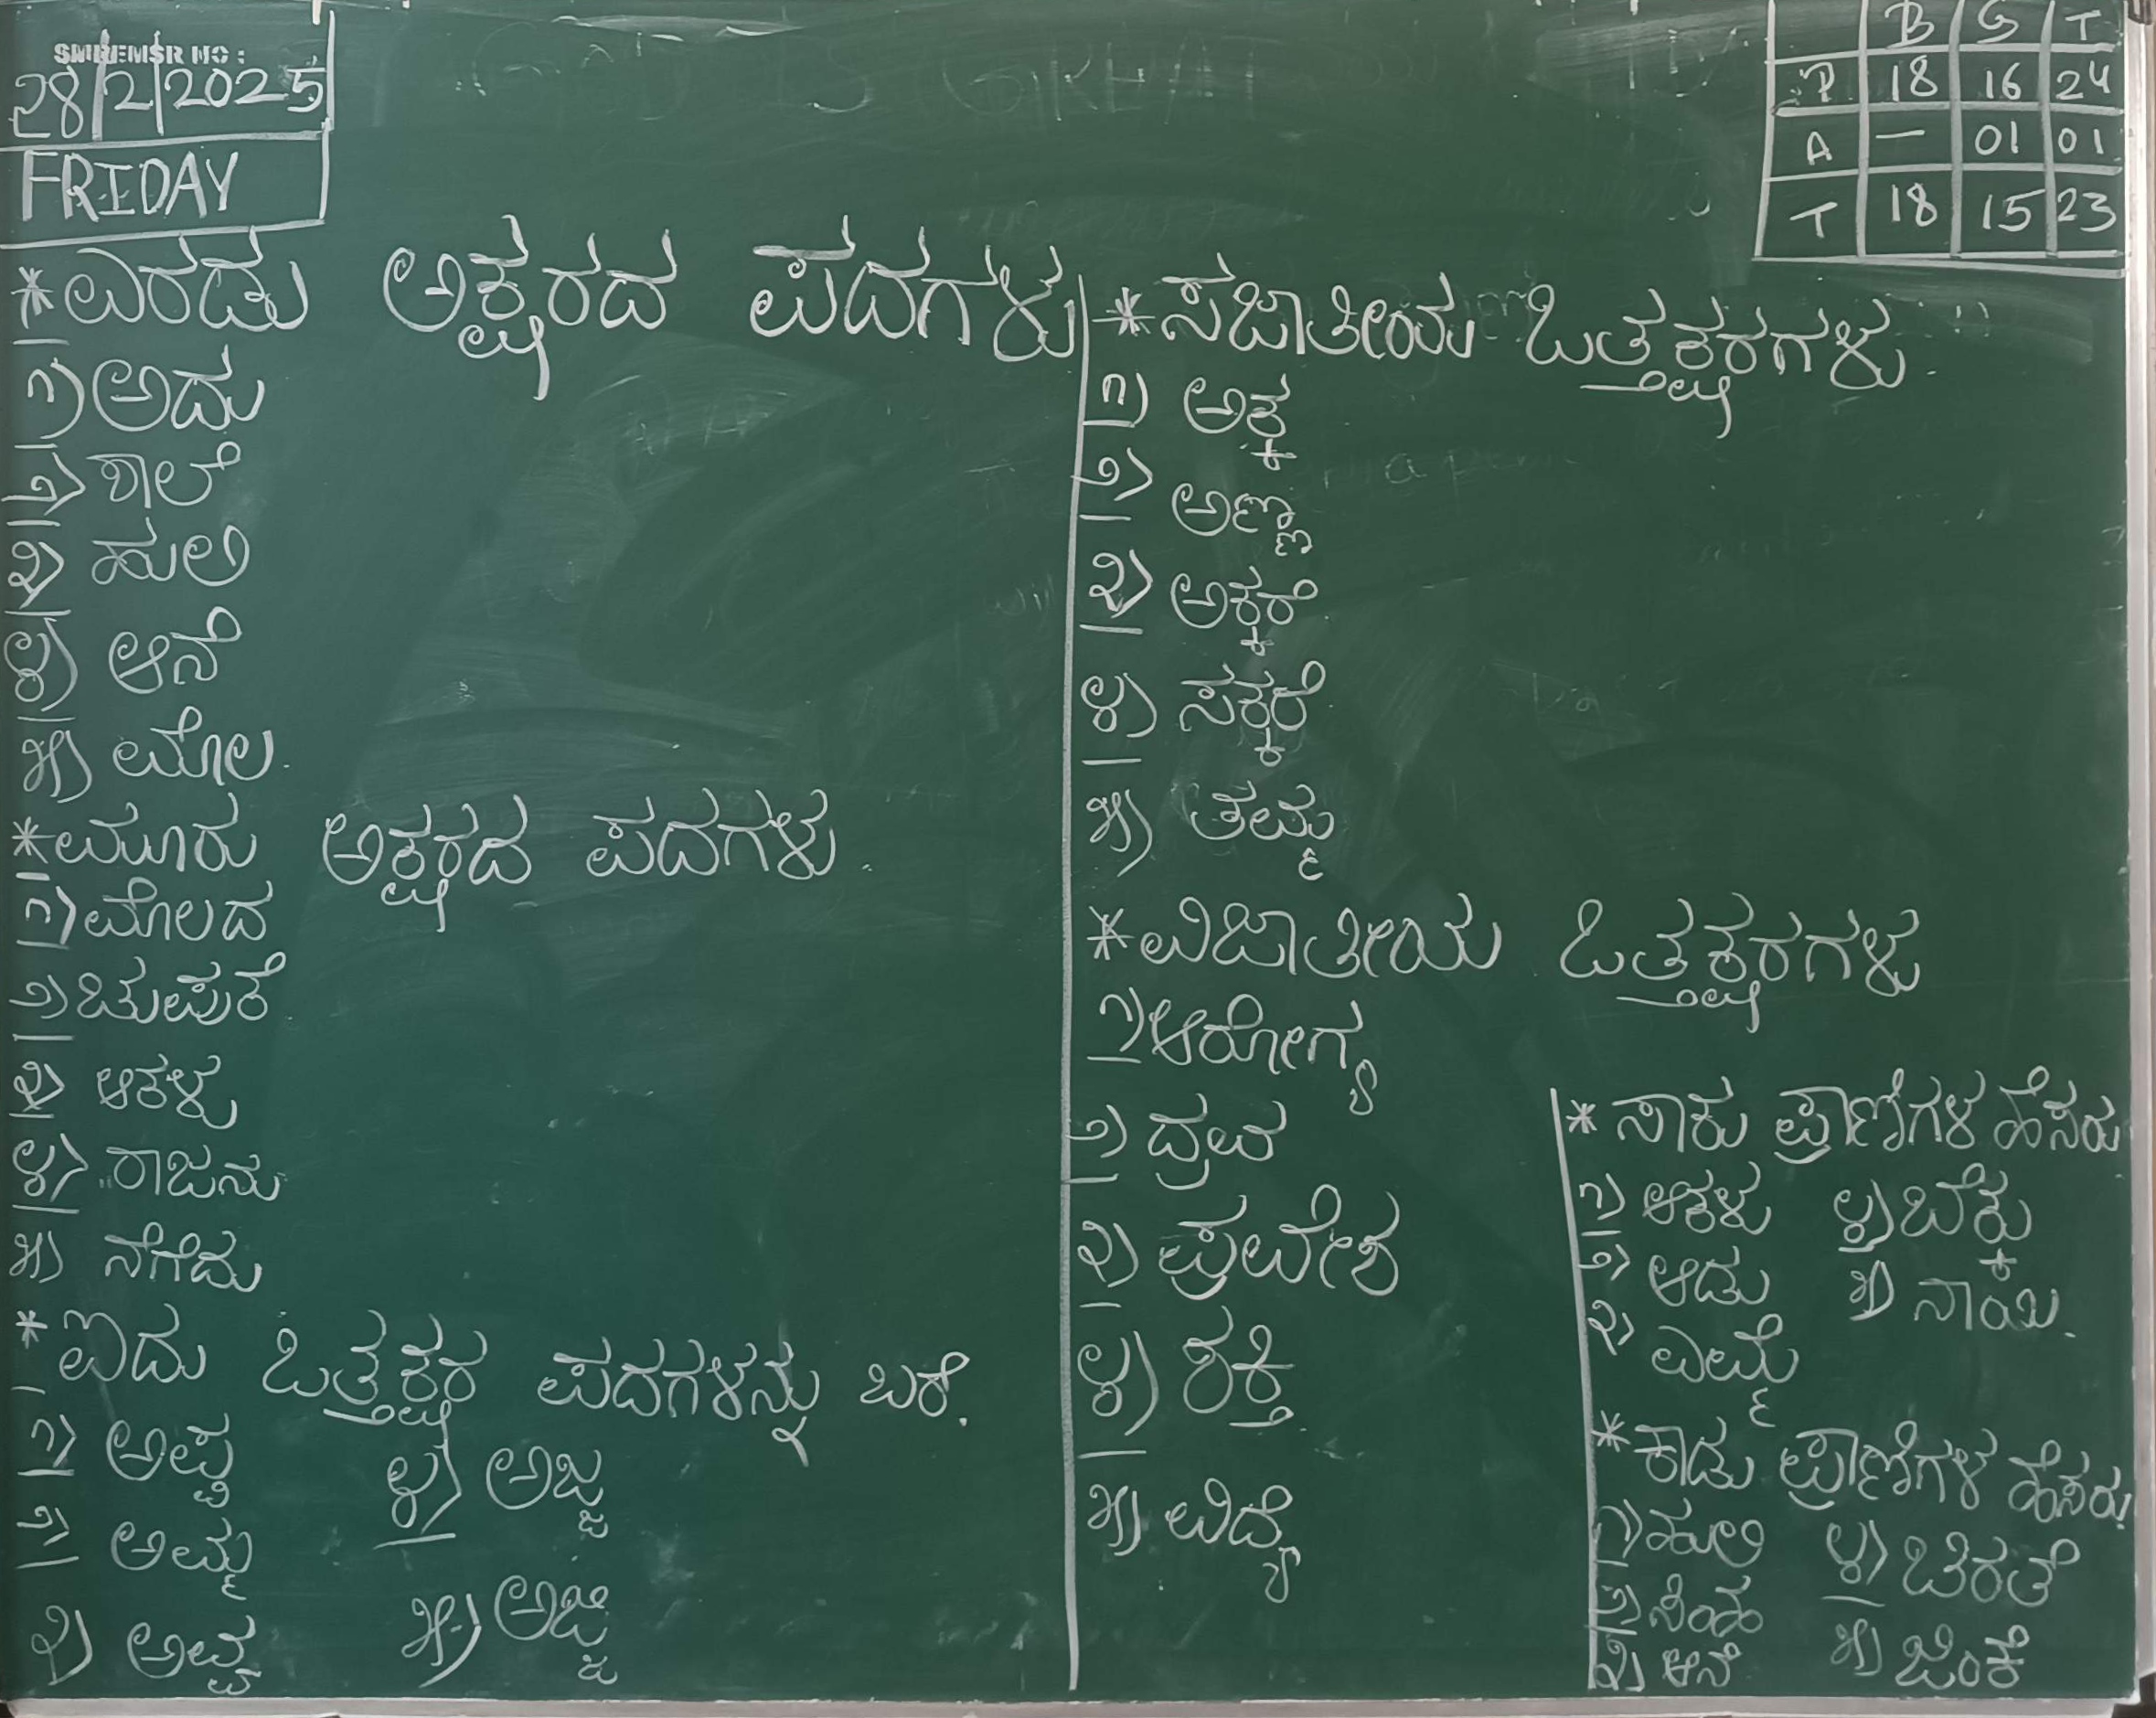 SMREMSR NO:
28/2/2025
FRIDAY
B G T
P 18 16 24
A — 01 01
T 18 15 23
*ಎರಡು ಅಕ್ಷರದ ಪದಗಳು
೧) ಅದು
೨) ಶಾಲೆ
೩) ಹುಲಿ
೪) ಆನೆ
೫) ಮೊಲ.
*ಮೂರು ಅಕ್ಷರದ ಪದಗಳು.
೧) ಮೊಲದ
೨) ಚುಪುಕೆ
೩) ಆಕಳು
೪) ರಾಜನು
೫) ನೆಗೆದು
*ಐದು ಒತ್ತಕ್ಷರ ಪದಗಳನ್ನು ಬರೆ.
೧) ಅಪ್ಪ ೪) ಅಜ್ಜ
೨) ಅಮ್ಮ
೩) ಅವ್ವ ೫) ಅಜ್ಜಿ
*ಸಜಾತೀಯ ಒತ್ತಕ್ಷರಗಳು.
೧) ಅಕ್ಕ
೨) ಅಣ್ಣ
೩) ಅಕ್ಕರೆ
೪) ಸಕ್ಕರೆ
೫) ತಮ್ಮ
*ವಿಜಾತೀಯ ಒತ್ತಕ್ಷರಗಳು
೧) ಆರೋಗ್ಯ
೨) ದ್ರವ
೩) ಪ್ರವೇಶ
೪) ಶಕ್ತಿ
೫) ವಿದ್ಯೆ
*ಸಾಕು ಪ್ರಾಣಿಗಳ ಹೆಸರು
೧) ಆಕಳು ೪) ಬೆಕ್ಕು
೨) ಆಡು ೫) ನಾಯಿ.
೩) ಎಮ್ಮೆ
*ಕಾಡು ಪ್ರಾಣಿಗಳ ಹೆಸರು
೧) ಹುಲಿ ೪) ಚಿರತೆ
೨) ಸಿಂಹ
೩) ಆನೆ ೫) ಜಿಂಕೆ